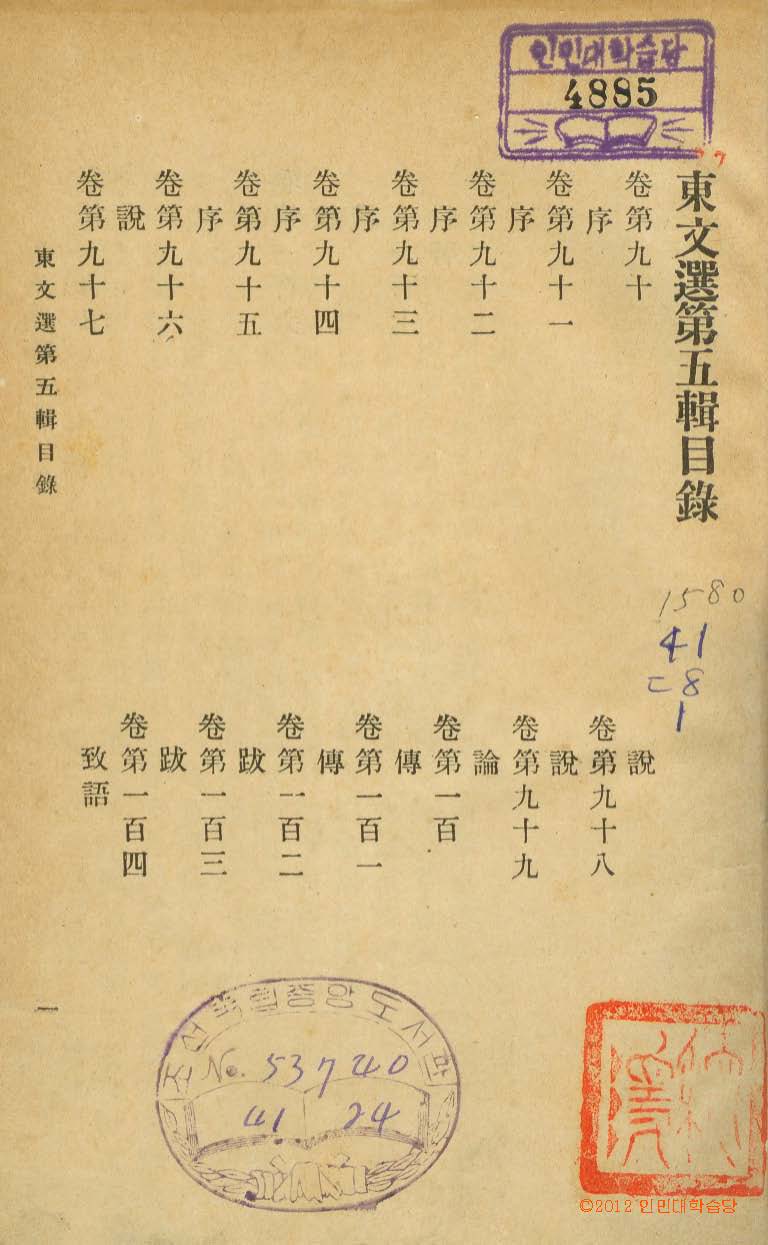 인민대학습당
4885
東文選第五輯目錄
卷第九十
序
卷第九十一
序
卷第九十二
序
卷第九十三
序
卷第九十四
序
卷第九十五
序
卷第九十六
說
卷第九十七
說
卷第九十八
說
卷第九十九
論
卷第一百
傳
卷第一百一
傳
卷第一百二
跋
卷第一百三
跋
卷第一百四
致語
東文選第五輯目錄
一
1580
41
ㄷ8
1
조선국립중앙도서관
No. 53740
41 24
©2012 인민대학습당